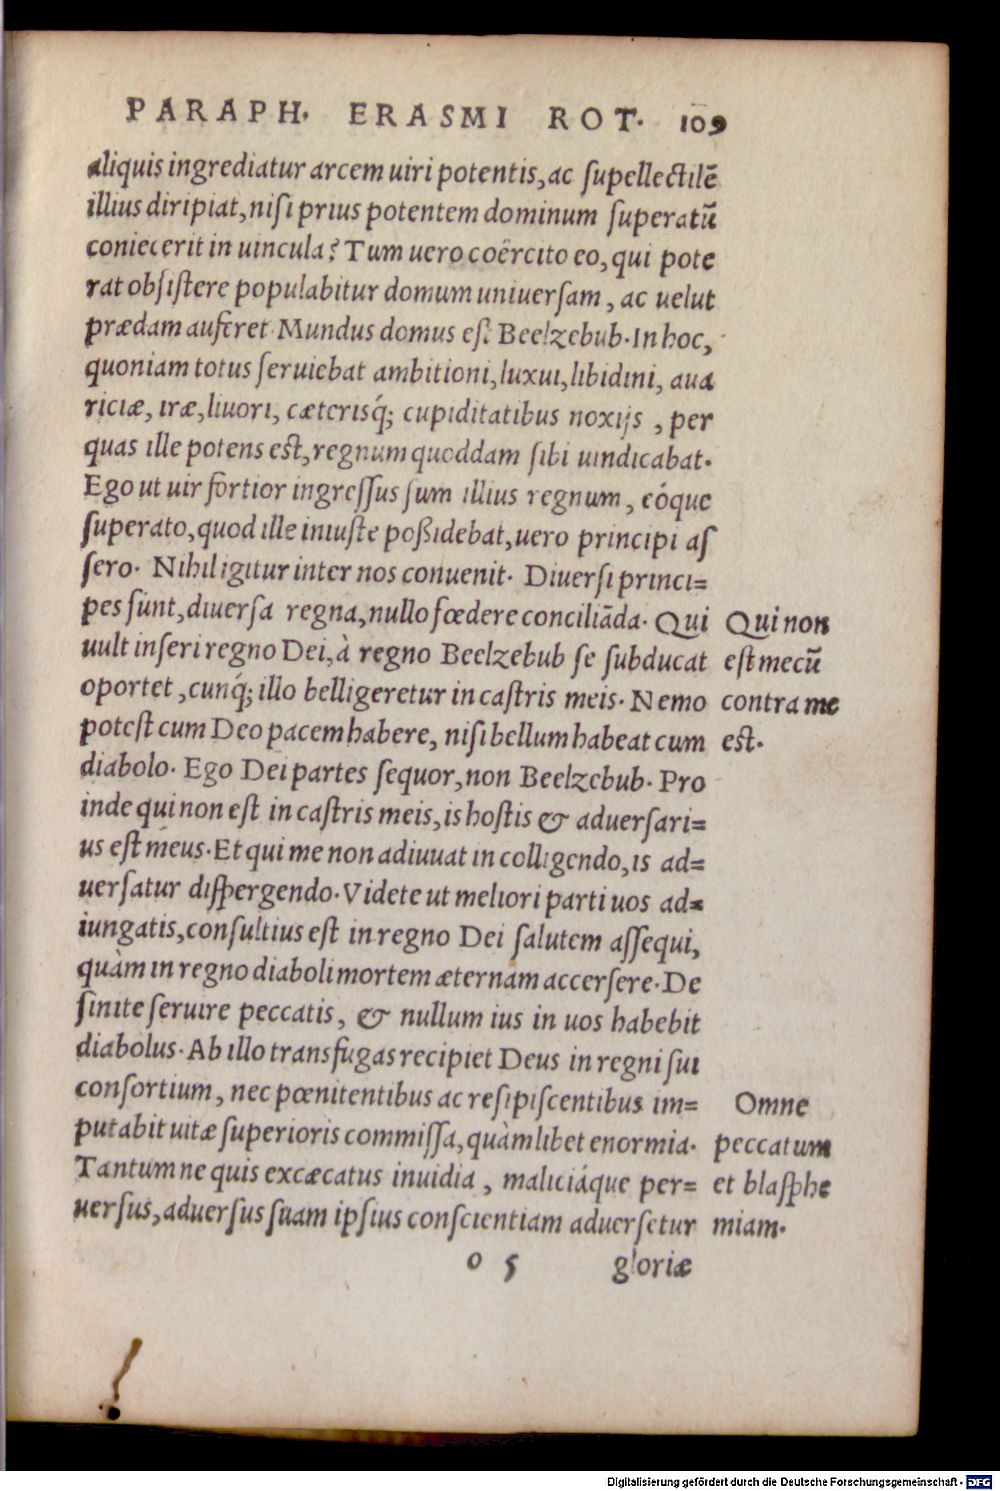 PARAPH. ERASMI ROT. 109
aliquis ingrediatur arcem uiri potentis, ac ſupellectilē
illius diripiat, niſi prius potentem dominum ſuperatū
coniecerit in uincula? Tum uero coërcito eo, qui pote
rat obſiſtere populabitur domum uniuerſam, ac uelut
prædam auferet. Mundus domus eſt Beelzebub. In hoc,
quoniam totus ſeruiebat ambitioni, luxui, libidini, aua
riciæ, iræ, liuori, cæterisq́; cupiditatibus noxijs, per
quas ille potens eſt, regnum quoddam ſibi uindicabat.
Ego ut uir fortior ingreſſus ſum illius regnum, eóque
ſuperato, quod ille iniuſte poßidebat, uero principi aſ
ſero. Nihil igitur inter nos conuenit. Diuerſi princi=
pes ſunt, diuerſa regna, nullo fœdere conciliāda. Qui
uult inſeri regno Dei, à regno Beelzebub ſe ſubducat
oportet, cunq́; illo belligeretur in caſtris meis. Nemo
poteſt cum Deo pacem habere, niſi bellum habeat cum
diabolo. Ego Dei partes ſequor, non Beelzebub. Pro
inde qui non eſt in caſtris meis, is hoſtis & aduerſari=
us eſt meus. Et qui me non adiuuat in colligendo, is ad=
uerſatur diſpergendo. Videte ut meliori parti uos ad=
iungatis, conſultius eſt in regno Dei ſalutem aſſequi,
quàm in regno diaboli mortem æternam accerſere. De
ſinite ſeruire peccatis, & nullum ius in uos habebit
diabolus. Ab illo transfugas recipiet Deus in regni ſui
conſortium, nec pœnitentibus ac reſipiſcentibus im=
putabit uitæ ſuperioris commiſſa, quàmlibet enormia.
Tantum ne quis excæcatus inuidia, maliciáque per=
uerſus, aduerſus ſuam ipſius conſcientiam aduerſetur
Qui non
eſt mecū
contra me
eſt.
Omne
peccatum
et blaſphe
miam.
o 5 gloriæ
Digitalisierung gefördert durch die Deutsche Forschungsgemeinschaft - DFG